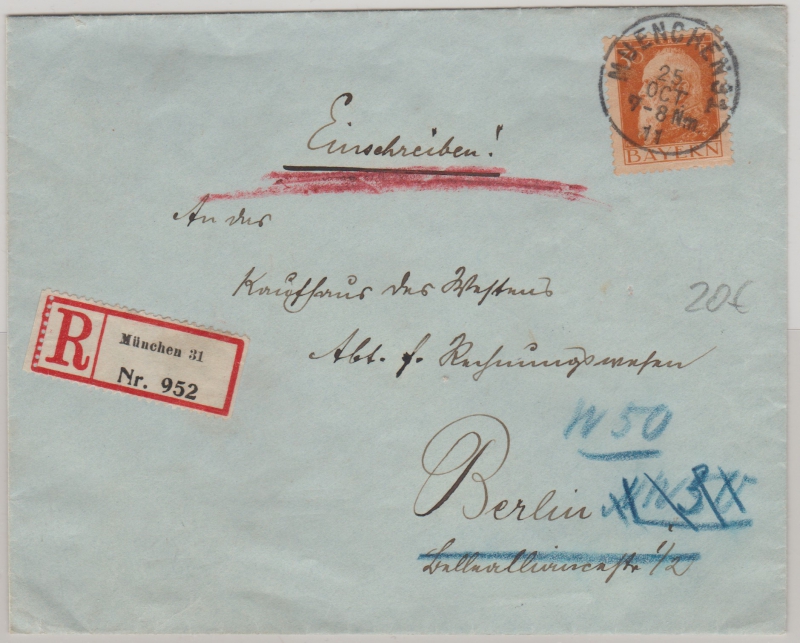 MUENCHEN 31
25
OCT
7-8 Nm.
11
BAYERN
Einschreiben!
An das
Kaufhaus des Westens
20€
Abt. f. Rechnungswesen
R
München 31
Nr. 952
W 50
Berlin
Bellealliancestr 1/2